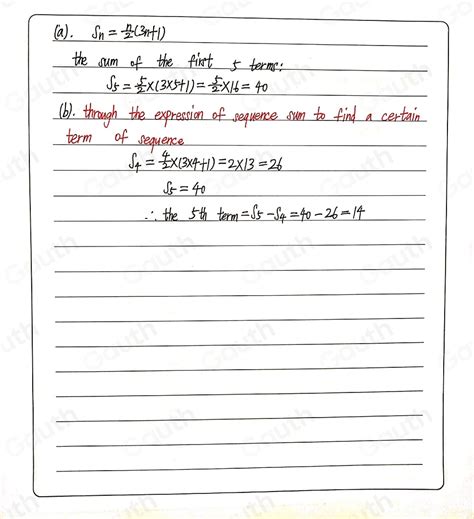 (a). Sn = n/2(3n+1)
the sum of the first 5 terms:
S5 = 5/2×(3×5+1) = 5/2×16 = 40
(b). through the expression of sequence sum to find a certain
term of sequence
S4 = 4/2×(3×4+1) = 2×13 = 26
S5 = 40
∴ the 5th term = S5 - S4 = 40 - 26 = 14
Gauth